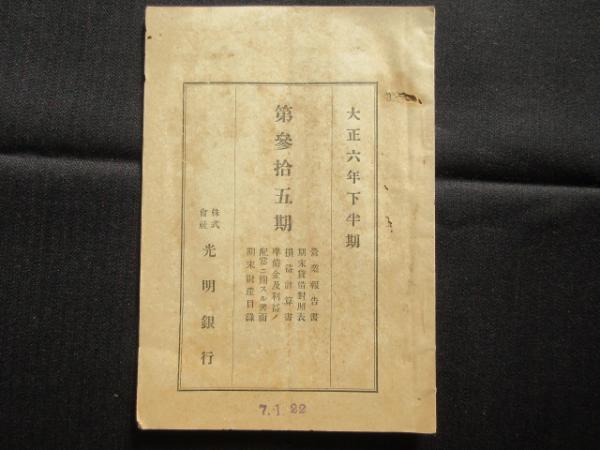 大正六年下半期
第參拾五期
營業報告書
期末貸借對照表
損益計算書
準備金及利益ノ
配當ニ關スル書面
期末財產目錄
株式
會社
光明銀行
7.1.22